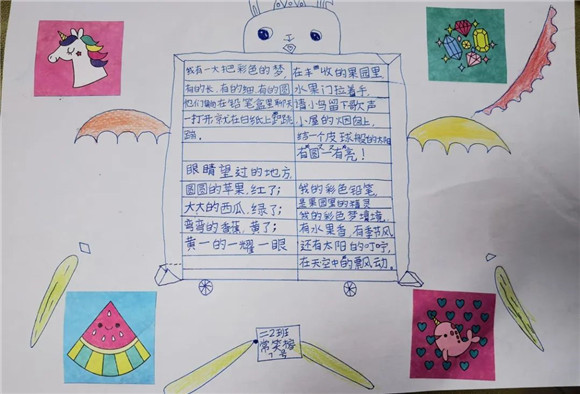 我有一大把彩色的梦
有的长,有的细,有的圆
他们躺在铅笔盒里聊天
一打开就在白纸上跳
蹦。
眼睛望过的地方,
圆圆的苹果,红了;
大大的西瓜,绿了;
弯弯的香蕉,黄了;
黄一的一耀一眼
在丰收的果园里
水果门拉着手,
请小鸟留下歌声
小屋的烟囱上,
结一个皮球般的太阳
有圆一有亮!
我的彩色铅笔,
是果园里的精灵
我的彩色梦境,
有水果香,有季节风,
还有太阳的叮咛,
在天空中的飘风动。
二2班
常笑
号